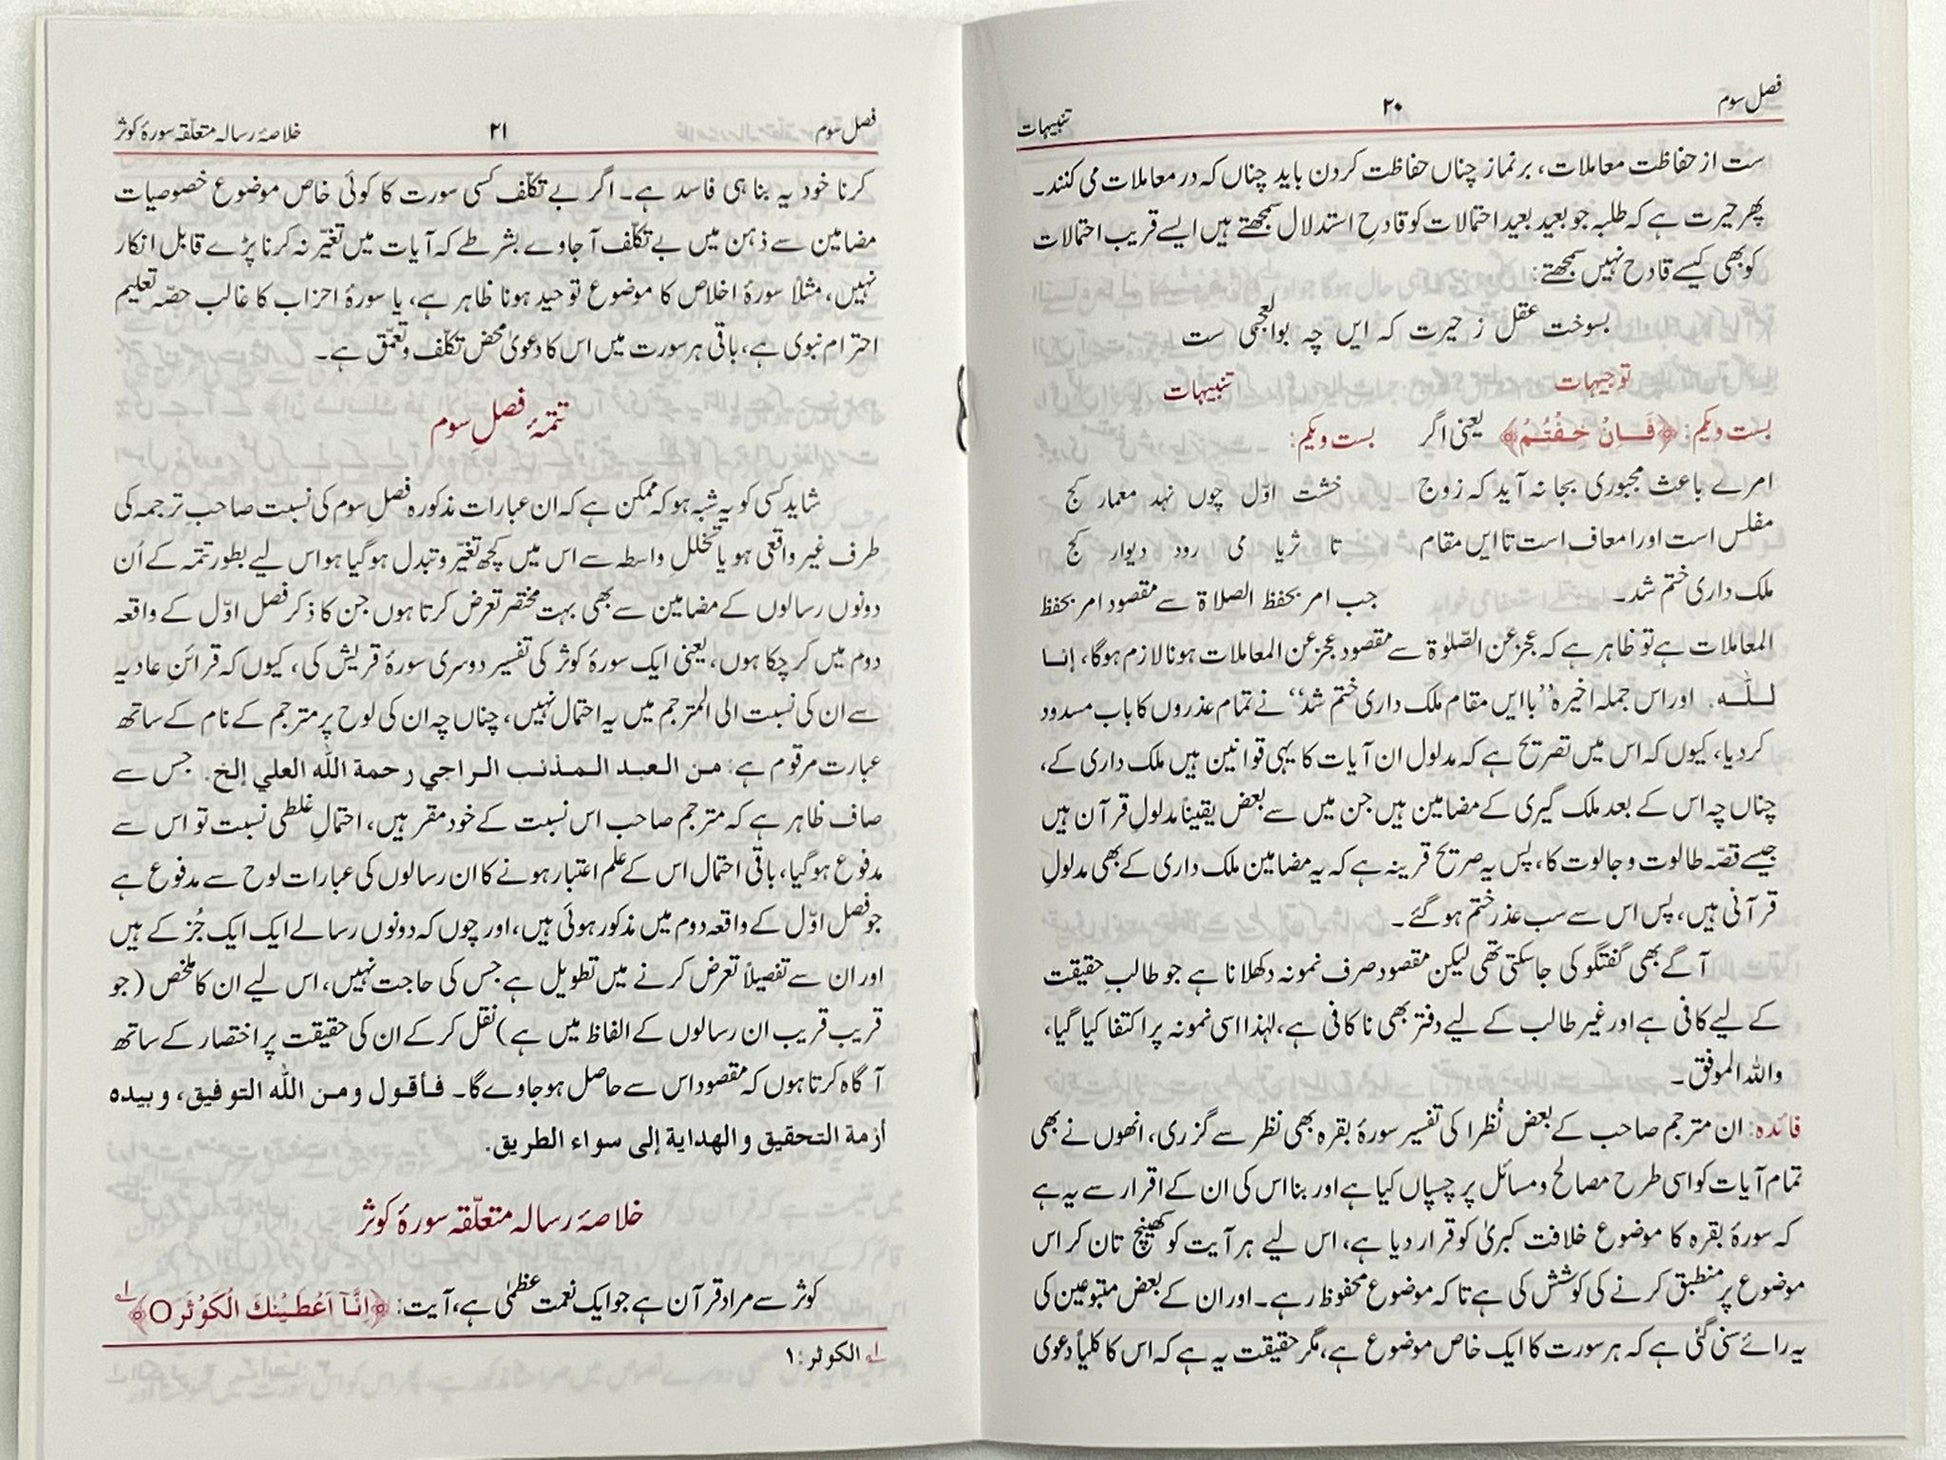 فصل سوم ۲۰ تنبیہات
ست از حفاظت معاملات، بر نماز چناں حفاظت کردن باید چناں کہ در معاملات می کنند۔
پھر حیرت ہے کہ طلبہ جو بعید بعید احتمالات کو قادحِ استدلال سمجھتے ہیں ایسے قریب احتمالات
کو بھی کیسے قادح نہیں سمجھتے:
بسوخت عقل ز حیرت کہ ایں چہ بوالعجمی ست
توجیہات تنبیہات
بست ویکم: ﴿فَاِنْ خِفْتُمْ﴾ یعنی اگر بست ویکم:
امرے باعث مجبوری بجا نہ آید کہ زوج خشت اوّل چوں نہد معمار کج
مفلس است اورا معاف است تا ایں مقام تا ثریا می رود دیوار کج
ملک داری ختم شد۔ جب امر بحفظ الصلاۃ سے مقصود امر بحفظ
المعاملات ہے تو ظاہر ہے کہ عجز عن الصّلوٰۃ سے مقصود عجز عن المعاملات ہونا لازم ہوگا، إنا
للّٰه. اور اس جملہ اخیرہ ’’باایں مقام ملک داری ختم شد‘‘ نے تمام عذروں کا باب مسدود
کردیا، کیوں کہ اس میں تصریح ہے کہ مدلول ان آیات کا یہی قوانین ہیں ملک داری کے،
چناں چہ اس کے بعد ملک گیری کے مضامین ہیں جن میں سے بعض یقیناً مدلولِ قرآن ہیں
جیسے قصّہ طالوت و جالوت کا، پس یہ صریح قرینہ ہے کہ یہ مضامین ملک داری کے بھی مدلولِ
قرآنی ہیں، پس اس سے سب عذر ختم ہوگئے۔
آگے بھی گفتگو کی جاسکتی تھی لیکن مقصود صرف نمونہ دکھلانا ہے جو طالبِ حقیقت
کے لیے کافی ہے اور غیر طالب کے لیے دفتر بھی ناکافی ہے، لہٰذا اسی نمونہ پر اکتفا کیا گیا،
واللہ الموفق۔
فائدہ: ان مترجم صاحب کے بعض نُظرا کی تفسیر سورۂ بقرہ بھی نظر سے گزری، انھوں نے بھی
تمام آیات کو اسی طرح مصالح و مسائل پر چسپاں کیا ہے اور بنا اس کی ان کے اقرار سے یہ ہے
کہ سورۂ بقرہ کا موضوع خلافت کبریٰ کو قرار دیا ہے، اس لیے ہر آیت کو کھینچ تان کر اس
موضوع پر منطبق کرنے کی کوشش کی ہے تاکہ موضوع محفوظ رہے۔ اور ان کے بعض متبوعین کی
یہ رائے سنی گئی ہے کہ ہر سورت کا ایک خاص موضوع ہے، مگر حقیقت یہ ہے کہ اس کا کلیاً دعویٰ
فصل سوم ۲۱ خلاصۂ رسالہ متعلّقہ سورۂ کوثر
کرنا خود یہ بنا ہی فاسد ہے۔ اگر بے تکلّف کسی سورت کا کوئی خاص موضوع خصوصیات
مضامین سے ذہن میں بے تکلّف آجاوے بشرطے کہ آیات میں تغیّر نہ کرنا پڑے قابل انکار
نہیں، مثلاً سورۂ اخلاص کا موضوع توحید ہونا ظاہر ہے، یا سورۂ احزاب کا غالب حصّہ تعلیم
احترام نبوی ہے، باقی ہر سورت میں اس کا دعویٰ محض تکلّف و تعمّق ہے۔
تتمۂ فصلِ سوم
شاید کسی کو یہ شبہ ہو کہ ممکن ہے کہ ان عبارات مذکورہ فصل سوم کی نسبت صاحبِ ترجمہ کی
طرف غیر واقعی ہو یا تخلّلِ واسطہ سے اس میں کچھ تغیّر و تبدل ہوگیا ہو اس لیے بطور تتمہ کے اُن
دونوں رسالوں کے مضامین سے بھی بہت مختصر تعرض کرتا ہوں جن کا ذکر فصل اوّل کے واقعہ
دوم میں کرچکا ہوں، یعنی ایک سورۂ کوثر کی تفسیر دوسری سورۂ قریش کی، کیوں کہ قرائنِ عادیہ
سے ان کی نسبت الی المترجم میں یہ احتمال نہیں، چناں چہ ان کی لوح پر مترجم کے نام کے ساتھ
عبارت مرقوم ہے: من العبد المذنب الراجي رحمة الله العلي إلخ. جس سے
صاف ظاہر ہے کہ مترجم صاحب اس نسبت کے خود مقر ہیں، احتمالِ غلطی نسبت تو اس سے
مدفوع ہوگیا، باقی احتمال اس کے علم اعتبار ہونے کا ان رسالوں کی عبارات لوح سے مدفوع ہے
جو فصل اوّل کے واقعہ دوم میں مذکور ہوئی ہیں، اور چوں کہ دونوں رسالے ایک ایک جُز کے ہیں
اور ان سے تفصیلاً تعرض کرنے میں تطویل ہے جس کی حاجت نہیں، اس لیے ان کا ملخص (جو
قریب قریب ان رسالوں کے الفاظ میں ہے) نقل کرکے ان کی حقیقت پر اختصار کے ساتھ
آگاہ کرتا ہوں کہ مقصود اس سے حاصل ہوجاوے گا۔ فأقول ومن الله التوفيق، وبيده
أزمة التحقيق والهداية إلى سواء الطريق.
خلاصۂ رسالہ متعلّقہ سورۂ کوثر
کوثر سے مراد قرآن ہے جو ایک نعمت عظمٰی ہے، آیت: ﴿اِنَّآ اَعْطَيْنٰكَ الْكَوْثَرَ O﴾ لـ
لـ الکوثر: ۱